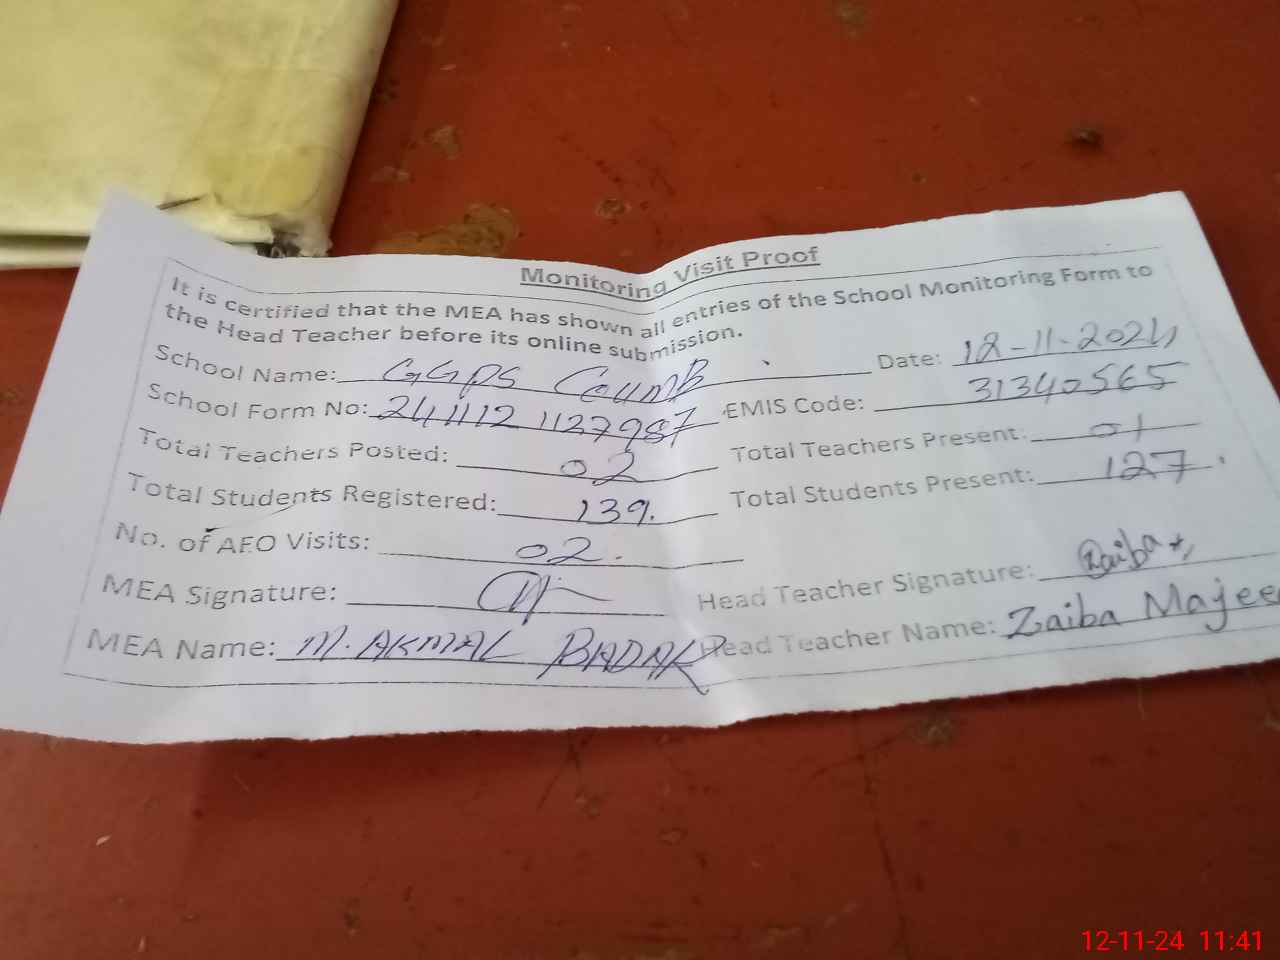 Monitoring Visit Proof
It is certified that the MEA has shown all entries of the School Monitoring Form to
the Head Teacher before its online submission.
School Name: GGPS Date: 12-11-2024
School Form No: 241112 1127987 EMIS Code: 31340565
Total Teachers Posted: 02 Total Teachers Present: 01
Total Students Registered: 139. Total Students Present: 127.
No. of AEO Visits: 02.
MEA Signature: Head Teacher Signature: Zaiba
MEA Name: M. AKMAL BADAR Head Teacher Name: Zaiba Majee
12-11-24 11:41